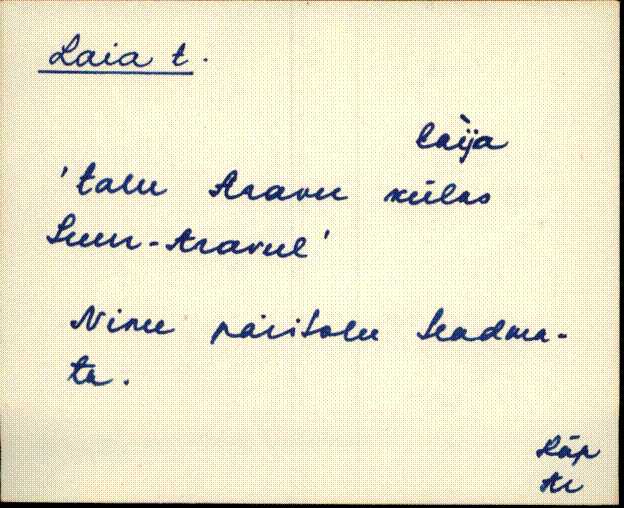 Laia t.
laìja
'talu Aravu külas
Suur-Aravul'
Nime päritolu teadma-
ta.
Räp
Ar